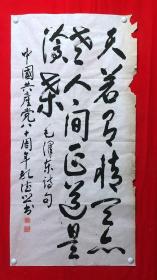 天若有情天亦
老人间正道是
滄桑 毛泽东诗句
中國共產党八十周年 书